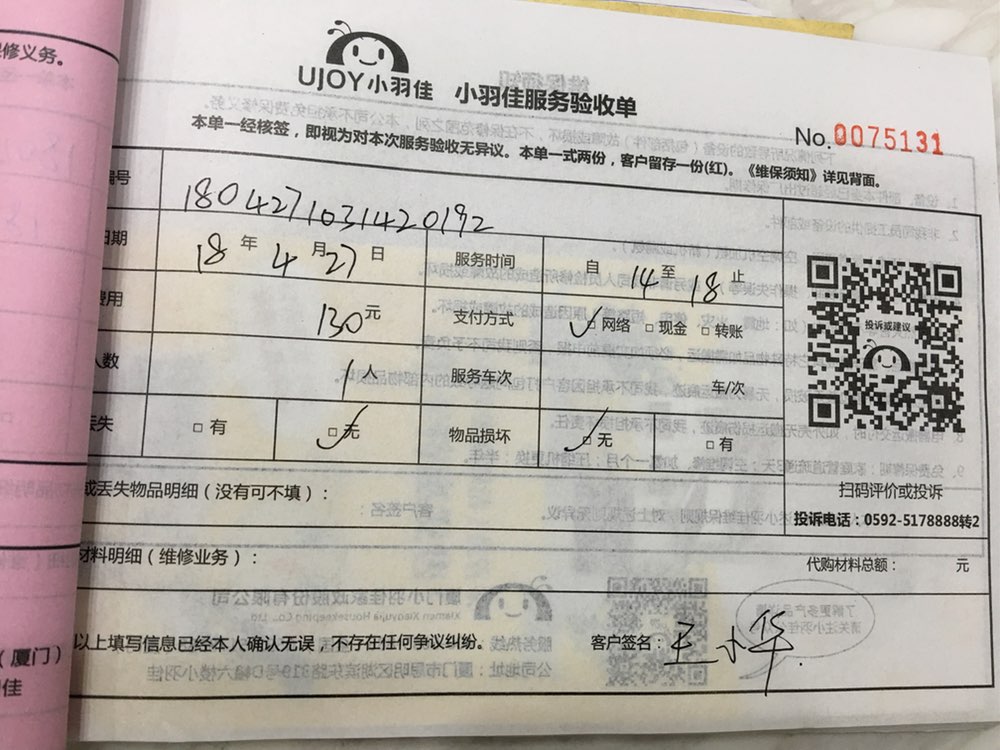 修义务。
UJOY小羽佳 小羽佳服务验收单
No.0075131
本单一经核签，即视为对本次服务验收无异议。本单一式两份，客户留存一份(红)。《维保须知》详见背面。
编号 1804271031420192
日期 18年4月27日 服务时间 自14至18止
费用 130元 支付方式 ✓□网络 □现金 □转账
人数 1人 服务车次 车/次
丢失 □有 ✓□无 物品损坏 ✓□无 □有
投诉或建议
扫码评价或投诉
投诉电话：0592-5178888转2
或丢失物品明细（没有可不填）：
材料明细（维修业务）： 代购材料总额： 元
以上填写信息已经本人确认无误，不存在任何争议纠纷。 客户签名：王小华
（厦门）
佳